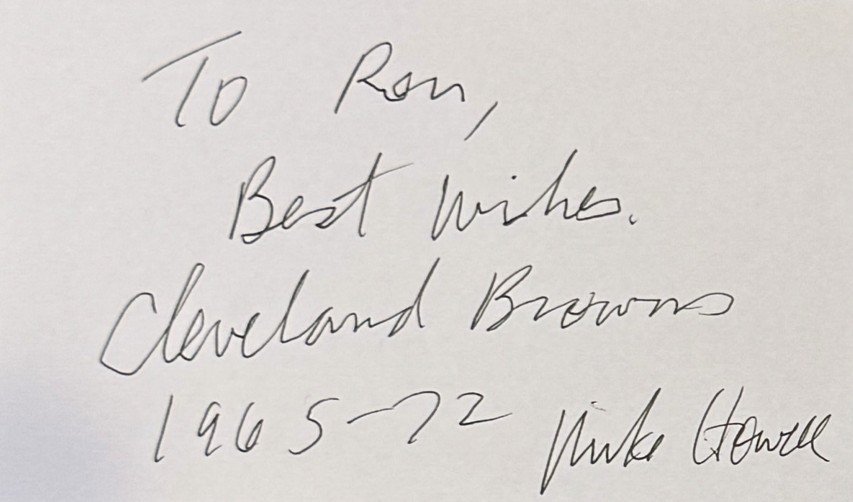 To Ron,
Best Wishes.
Cleveland Browns
1965-72 Mike Howell